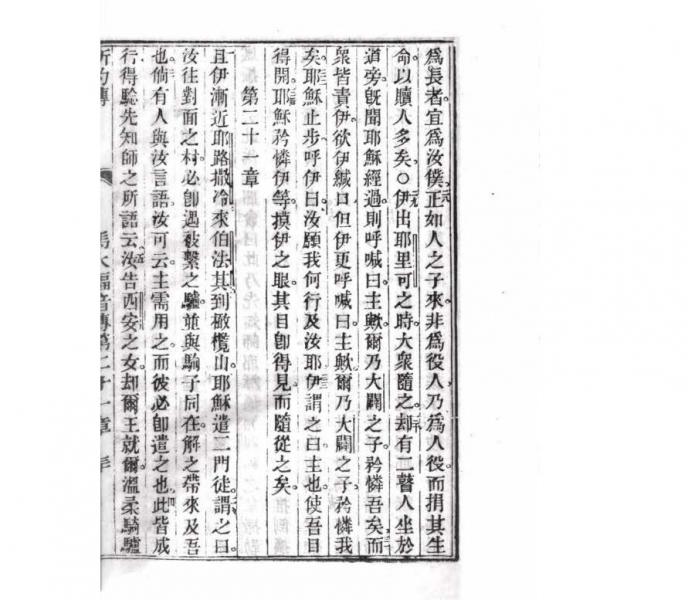 為長者宜為汝僕正如人之子來非為役人乃為人役而捐其生
命以贖人多矣○伊出耶里可之時大衆隨之却有二瞽人坐於
道旁既聞耶穌經過則呼喊曰主歟爾乃大闢之子矜憐吾矣而
衆皆責伊欲伊緘口但伊更呼喊曰主歟爾乃大闢之子矜憐我
矣耶穌止步呼伊曰汝願我何行及汝耶伊謂之曰主也使吾目
得開耶穌矜憐伊等摸伊之眼其目即得見而隨從之矣
第二十一章
且伊漸近耶路撒冷來伯法其到橄欖山耶穌遣二門徒謂之曰
汝往對面之村必即遇被繫之驢並與駒子同在解之帶來及吾
也倘有人與汝言語汝可云主需用之而彼必即遣之也此皆成
行得騐先知師之所語云汝告西安之女却爾王就爾溫柔騎驢
馬太福音傳第二十一章